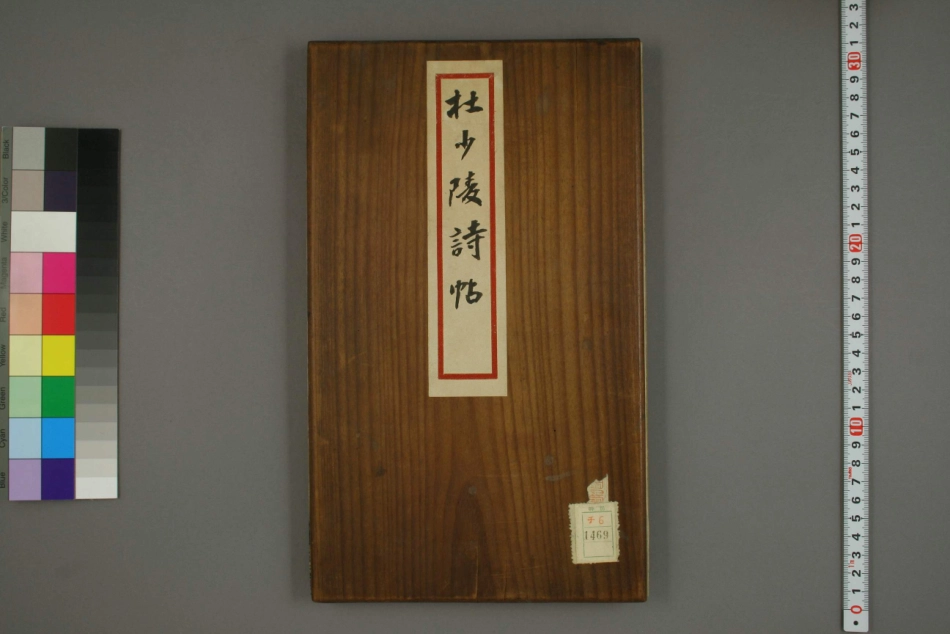 杜少陵詩帖
チ6
1469
Black
3/Color
White
Magenta
Red
Yellow
Green
Cyan
Blue
3
2
1
30
9
8
7
6
5
4
3
2
1
20
9
8
7
6
5
4
3
2
1
10
9
8
7
6
5
4
3
2
1
0